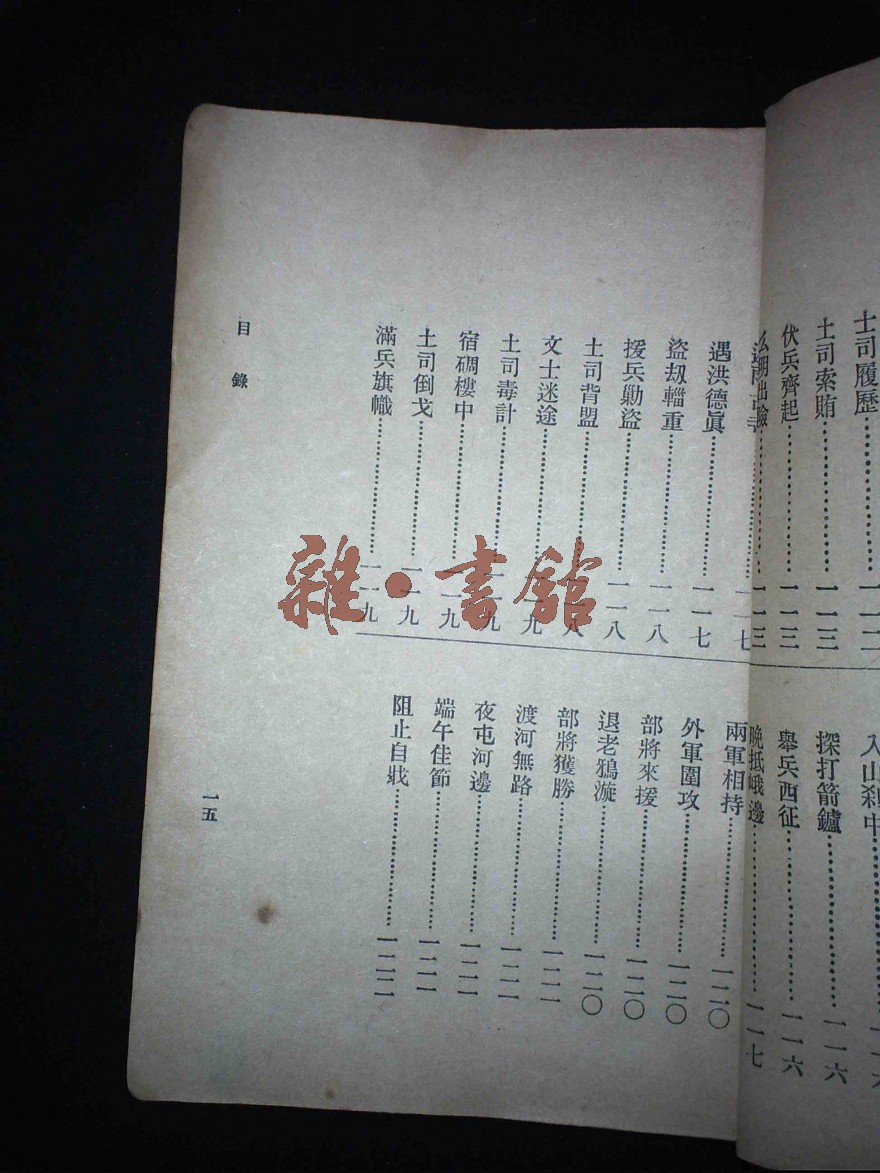 土司履歷
土司索賄……一一三
伏兵齊起……一一三
出險……一一三
入山
探打箭鑪……一一六
舉兵西征……一一六
晚抵峨邊……一一七
一一七
遇洪德眞……一一七
盜刼輜重……一一八
援兵勦盜……一一八
土司背盟……一一八
文士迷途……一一九
土司毒計……一一九
宿碉樓中……一一九
土司倒戈……一一九
滿兵旗幟……一一九
兩軍相持……一二〇
外軍圍攻……一二〇
部將來援……一二〇
退老鴉漩……一二〇
部將獲勝……一二一
渡河無路……一二一
夜屯河邊……一二一
端午佳節……一二一
阻止自戕……一二二
目錄
一五
雜·書館